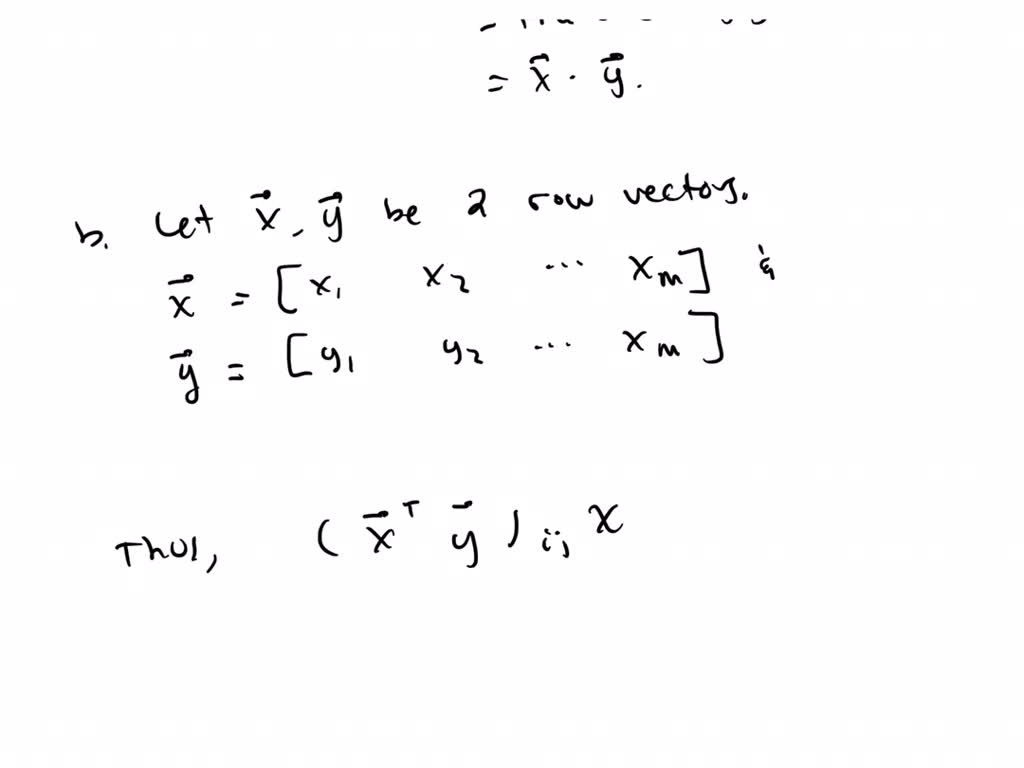 = x⃗ · y⃗.
b. Let x⃗, y⃗ be 2 row vectors.
x⃗ = [x₁ x₂ ... xₘ] &
y⃗ = [y₁ y₂ ... xₘ]
Thus, (x⃗ᵀ y⃗)ᵢⱼ x